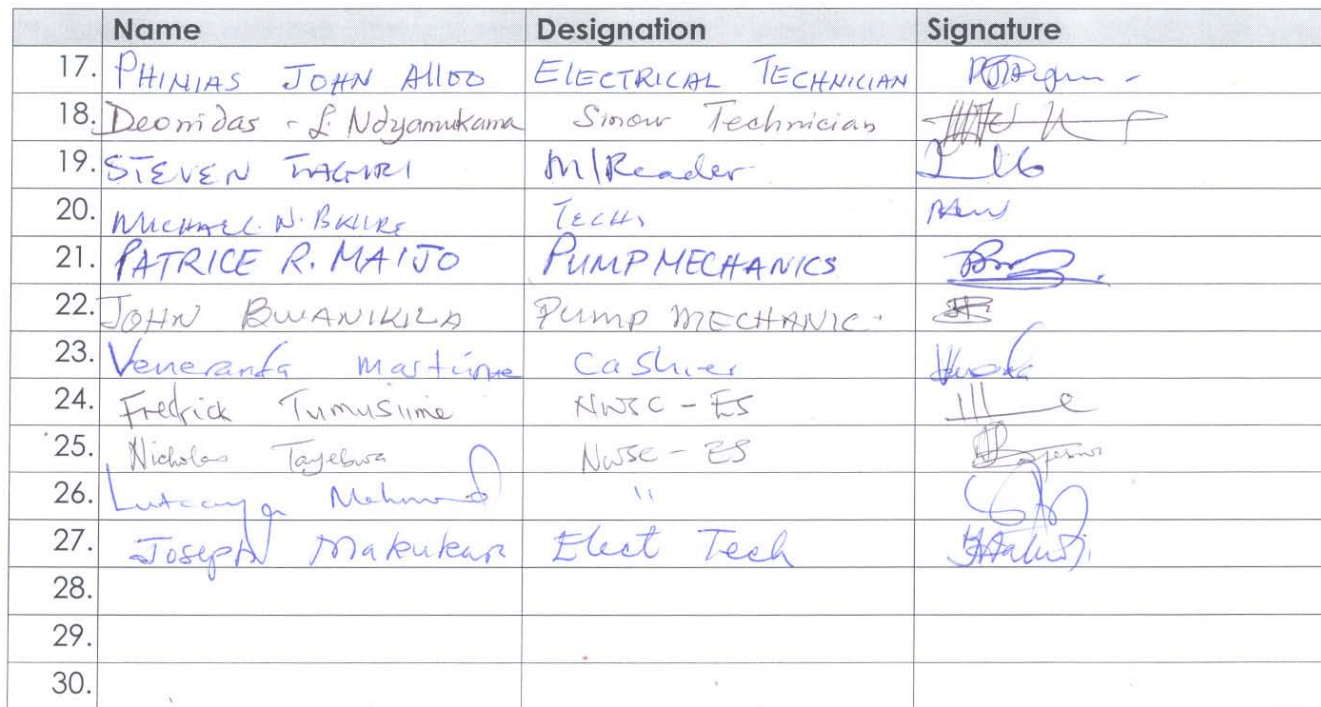 Name Designation Signature
17. PHINIAS JOHN AlloO ElECTRICAL TECHNICIAN
18. Deonidas - L. Ndyamukama Technician
19. STEVEN M/Reader
20. MICHAEL N. TECH,
21. PATRICE R. MAIJO PUMP MECHANICS
22. JOHN BWANIKILA PUMP MECHANIC.
23. Veneranda Martine Cashier
24. Fredrick Tumusiime NWSC - ES
25. Nicholas Tayebwa NWSC - ES
26. Lutaaya Mahmood "
27. Joseph Elect Tech
28.
29.
30.